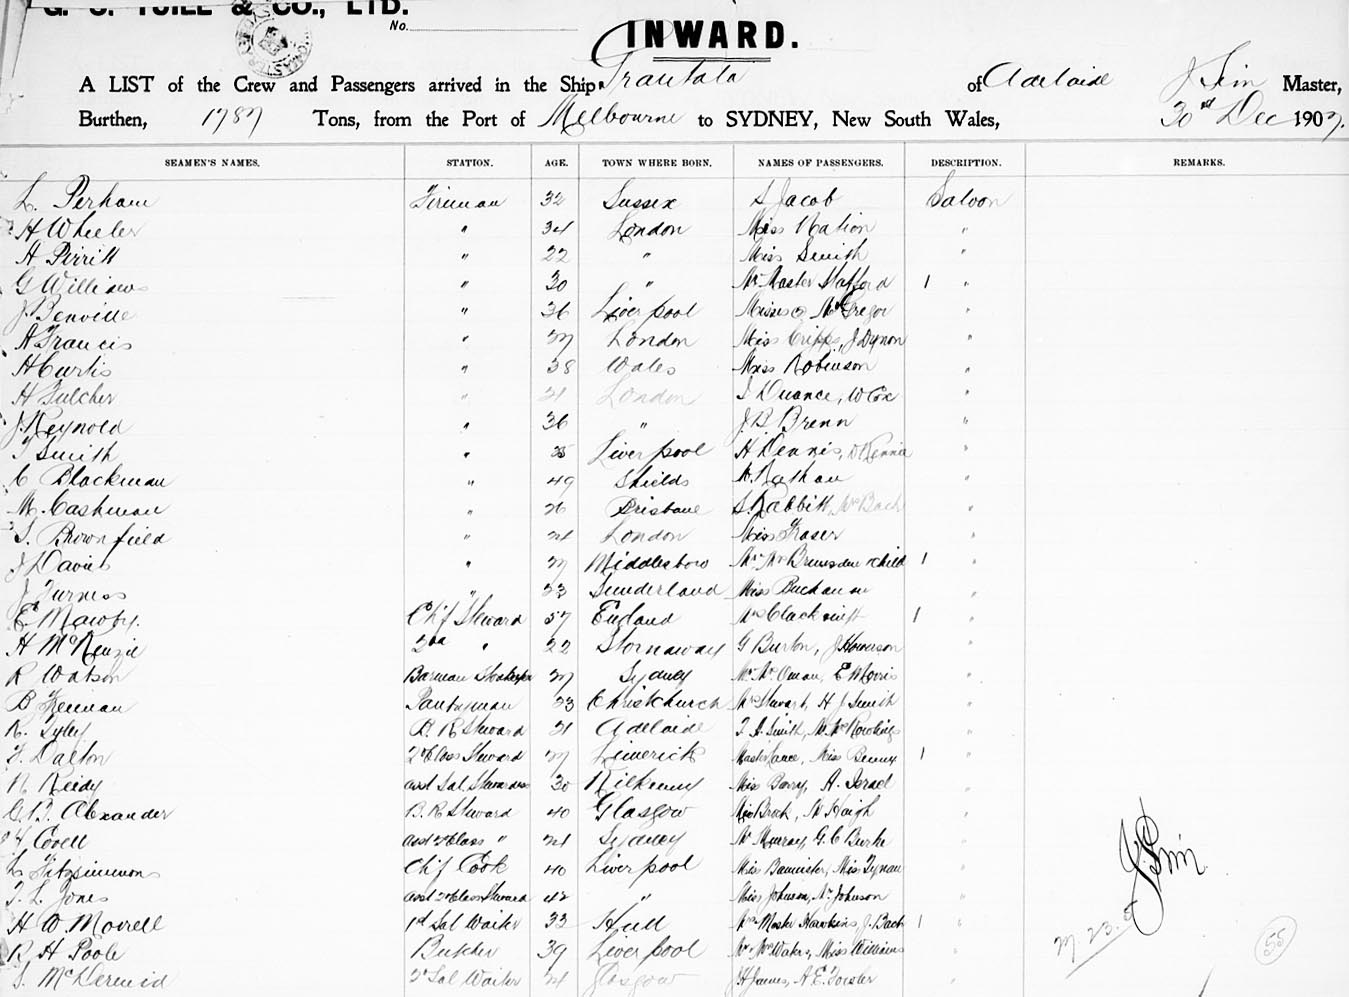 G. S. YUILL & CO., LTD.
No.
INWARD.
A LIST of the Crew and Passengers arrived in the Ship Grantala of Adelaide J Sim Master,
Burthen, 1787 Tons, from the Port of Melbourne to SYDNEY, New South Wales, 30th Dec 1907.
SEAMEN'S NAMES. STATION. AGE. TOWN WHERE BORN. NAMES OF PASSENGERS. DESCRIPTION. REMARKS.
L. Perham Fireman 32 Sussex S Jacob Saloon
H Wheeler " 34 London Miss Nation "
H Pirritt " 22 " Miss Smith "
G Williams " 30 " Master Stafford 1 "
J Benville " 36 Liverpool Misses McGregor "
A Francis " London Miss Cripps, J Dynon "
H Curtis " 38 Wales Miss Robinson "
H Fulcher " 21 London Durance, W Cox "
J Reynold " 36 " J. B. Brenn "
T Smith " 25 Liverpool H Dennis, D Rennie "
C Blackman " 49 Shields Nathan "
M. Cashman " 26 Brisbane S. Rabbitt, Mrs Bach "
T. Brownfield " 24 London Miss Fraser "
J Davies " Middlesboro child 1 "
J Furness " 33 Sunderland Miss Buchanan "
E Mawby. Chf Steward 57 England 1 "
H McKenzie 2nd " 22 Stornaway G Burton, J Howison "
R Watson Barman Sydney E Morris "
B Freeman Pantryman 23 Christchurch Stewart, H J Smith "
R. Tyley B. R Steward 21 Adelaide T. A. Smith, Rowlings "
F. Dalton 2nd Class Steward Limerick Miss Benny 1 "
N Reidy asst Sal Stewardess 30 Kilkenny Miss Barry, A. Israel "
G. B. Alexander B. R Steward 40 Glasgow Miss Brock, Haigh "
H Covell asst 2nd Class " 24 Sydney Murray, G. C Burke "
L Fitzsimmons Chf Cook 40 Liverpool Miss Bannister, Miss Tynan "
T. L. Jones asst 2nd Class Steward 42 " Miss Johnson, Johnson "
H W Morrell 1st Sal Waiter 33 Hull Master Hawkins, J. Bach 1 "
R H Poole Butcher 39 Liverpool Miss Williams "
T. McDermid 2nd Sal Waiter 24 Glasgow H James, A. E. Forster "
J. Sim